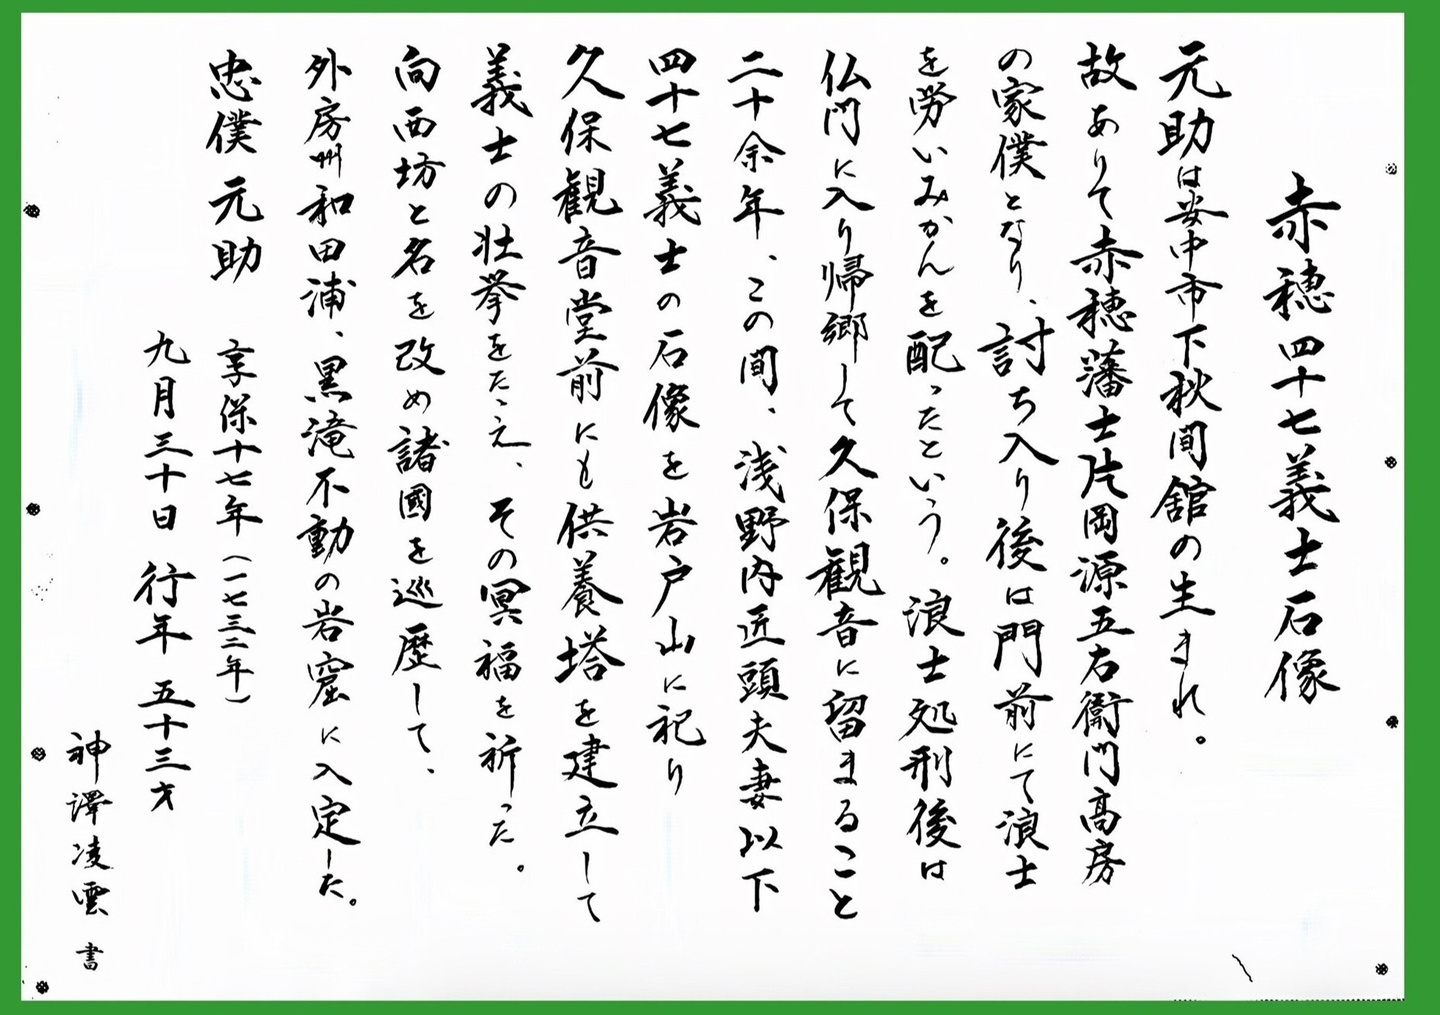 赤穂四十七義士石像
元助は安中市下秋間舘の生まれ。
故ありて赤穂藩士片岡源五右衛門高房
の家僕となり、討ち入り後は門前にて浪士
を労いみかんを配ったという。浪士処刑後は
仏門に入り帰郷して久保観音に留まること
二十余年、この間、浅野内匠頭夫妻以下
四十七義士の石像を岩戸山に祀り
久保観音堂前にも供養塔を建立して
義士の壮挙をたゝえ、その冥福を祈った。
向西坊と名を改め諸國を巡歴して、
外房州和田浦、黒滝不動の岩窟に入定した。
忠僕 元助 享保十七年(一七三二年)
九月三十日 行年 五十三才
神澤凌雲 書